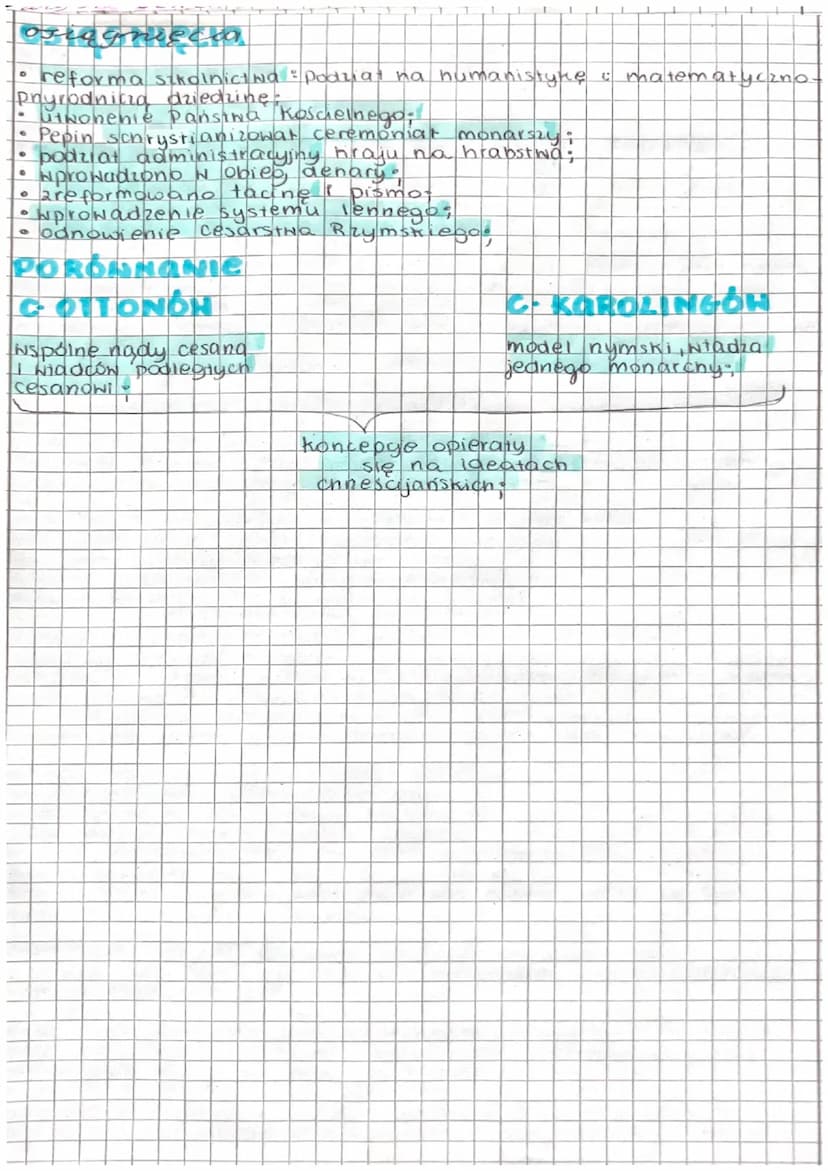 osiągnięcia
• reforma szkolnictwa: podział na humanistykę i matematyczno-
przyrodniczą dziedzinę;
• utworzenie Państwa Kościelnego;
• Pepin schrystianizował ceremoniał monarszy;
• podział administracyjny kraju na hrabstwa;
• wprowadzono w obieg denary;
• zreformowano łacinę i pismo;
• wprowadzenie systemu lennego;
• odnowienie Cesarstwa Rzymskiego;
PORÓWNANIE
C. OTTONÓW
C. KAROLINGÓW
wspólne rządy cesarza
i władców podległych
cesarzowi;
model rzymski, władza
jednego monarchy;
koncepcje opierały
się na ideałach
chrześcijańskich;